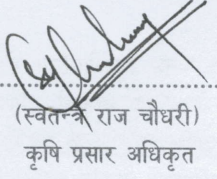 (स्वतन्त्र राज चौधरी)
कृषि प्रसार अधिकृत